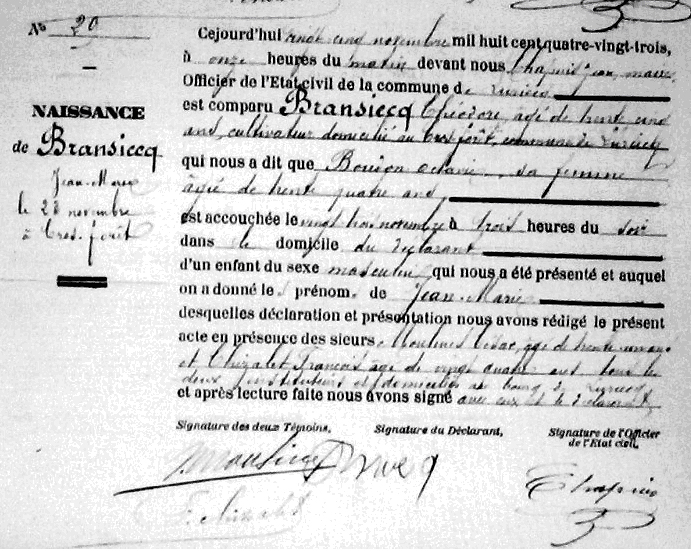 N° 20
NAISSANCE
de Bransiecq
Jean-Marie
le 23 novembre
à
Cejourd'hui vingt cinq novembre mil huit cent quatre-vingt-trois,
à onze heures du matin devant nous Jean, maire
Officier de l'Etat civil de la commune de
est comparu Bransiecq Théodore, âgé de trente cinq
ans, cultivateur domicilié au commune de
qui nous a dit que Octavie sa femme
âgée de trente quatre ans
est accouchée le vingt trois novembre à trois heures du soir
dans le domicile du déclarant
d'un enfant du sexe masculin qui nous a été présenté et auquel
on a donné les prénoms de Jean-Marie
desquelles déclaration et présentation nous avons rédigé le présent
acte en présence des sieurs âgé de trente ans
et François âgé de vingt quatre ans tous les
deux instituteurs et domiciliés au bourg de
et après lecture faite nous avons signé avec eux et le déclarant
Signature des deux Témoins,
Signature du Déclarant,
Signature de l'Officier
de l'Etat civil,